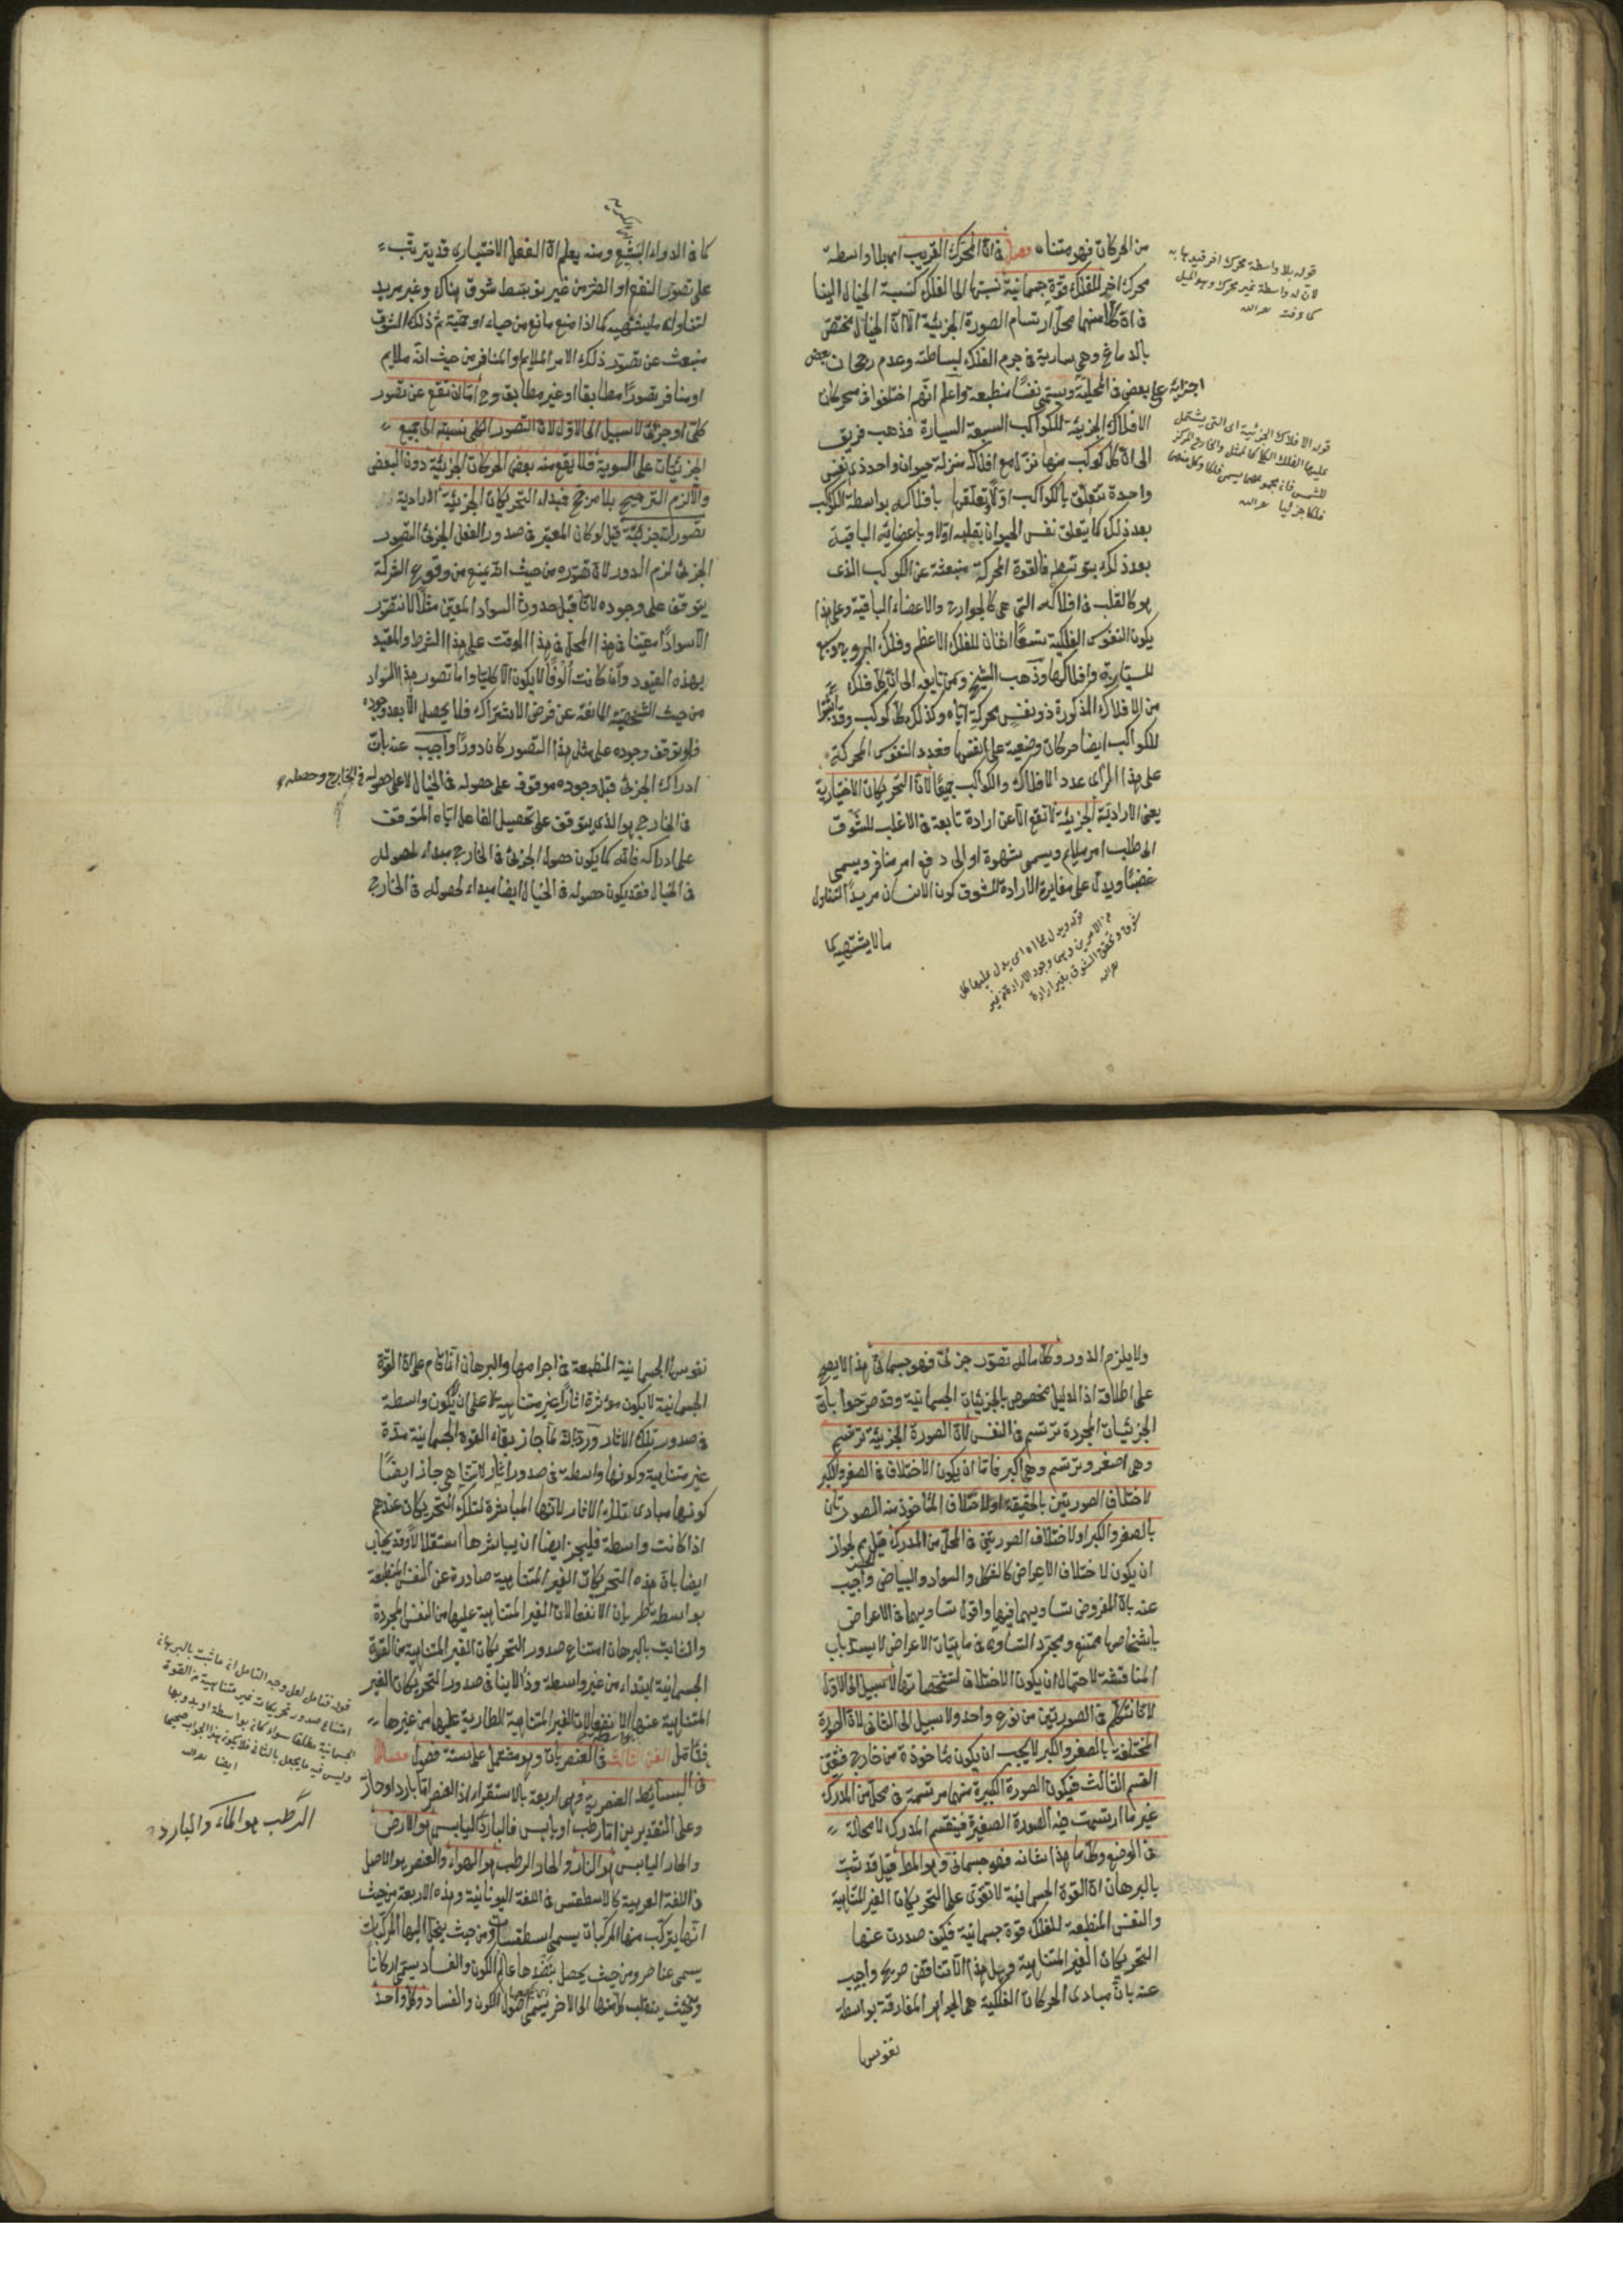 من الحركات فهو متناه فصل في ان المحرك القريب اى بلا واسطة
محرك اخر للفلك قوة جسمانية نسبتها الى الفلك كنسبة الخيال الينا
في ان كلا منهما محل ارتسام الصورة الجزئية الا ان الخيال مختص
بالدماغ وهى سارية في جرم الفلك لبساطته وعدم رجحان بعض
اجزائه على بعض في المحلية ويسمى نفسا منطبعة واعلم انهم اختلفوا في محركات
الافلاك الجزئية للكواكب السبعة السيارة فذهب فريق
الى ان كل كوكب منها ينزل مع افلاكه منزلة حيوان واحد ذى نفس
واحدة تتعلق بالكواكب اولا وتعلقها بافلاكه بواسطة الكوكب
بعد ذلك كما يتعلق نفس الحيوان بقلبه اولا وباعضائه الباقية
بعد ذلك بتوسطه فالقوة المحركة منبعثة عن الكوكب الذى
هو كالقلب في افلاكه التى هى كالجوارح والاعضاء الباقية وعلى هذا
يكون النفوس الفلكية تسعا اثنان للفلك الاعظم وفلك البروج وسبع
للسيارة وافلاكها وذهب الشيخ ومن تابعه الى ان كل فلك
من الافلاك المذكورة ذو نفس محركة اياه وكذلك كل كوكب وقد اثبتوا
للكواكب ايضا حركات وضعية على انفسها فعدد النفوس المحركة
على هذا الرأى عدد الافلاك والكواكب جميعا لان التحريكات الاختيارية
يعنى الارادية الجزئية لا تقع الا عن ارادة تابعة في الاغلب للشوق
الى طلب امر ملايم ويسمى شهوة او الى دفع امر منافر ويسمى
غضبا ويدل على مغايرة الارادة للشوق كون الانسان مريدا لتناول
ما لا يشتهيه كما
قوله بلا واسطة محرك اخر قيد بها به
لان له واسطة غير محرك وهو الميل
كما عرفت
قوله الافلاك الجزئية اى التى يشتمل
عليها الفلك الكلى كالممثل والخارج المركز
للشمس فان مجموعهما يسمى فلكا وكل منهما
فلكا جزئيا
قوله ويدل على اه اى يدل عليها كل
من الامرين وهى وجود الارادة من غير
شوق وتحقق الشوق بغير ارادة
كما في الدواء البشيع ومنه يعلم ان الفعل الاختيارى قد يترتب
على تصور النفع او الضرر من غير توسط شوق هناك وغير مريد
لتناول ما يشتهيه كما اذا منع مانع من حياء او حمية ثم ذلك الشوق
منبعث عن تصور ذلك الامر الملايم او المنافر من حيث انه ملايم
او منافر تصورا مطابقا او غير مطابق وح اما ان تقع عن تصور
كلى او جزئى لا سبيل الى الاول لان التصور الكلى نسبته الى جميع
الجزئيات على السوية فلا يقع منه بعض الحركات الجزئية دون البعض
والا لزم الترجيح بلا مرجح فمبدأ التحريكات الجزئية الارادية
تصورات جزئية قيل لو كان المعتبر في صدور الفعل الجزئى التصور
الجزئى لزم الدور لان تصوره من حيث انه يمنع من وقوع الشركة
يتوقف على وجوده لانا قبل حدوث السواد المعين مثلا لا نتصور
الا سوادا معينا في هذا المحل في هذا الوقت على هذا الشرط والمقيد
بهذه القيود وان كانت الوفا لا يكون الا كليا واما تصور هذا السواد
من حيث الشخصية المانعة عن فرض الاشتراك فلا يحصل الا بعد وجوده
فلو توقف وجوده على مثل هذا التصور كان دورا واجيب عنه بان
ادراك الجزئى قبل وجوده موقوف على حصوله في الخيال لا على حصوله في الخارج وحصوله
في الخارج هو الذى يتوقف على تحصيل الفاعل اياه المتوقف
على ادراكه فانه كما يكون حصول الجزئى في الخارج مبداء لحصوله
في الخيال فقد يكون حصوله في الخيال ايضا مبداء لحصوله في الخارج
ولا يلزم الدور وكل ما له تصور جزئى فهو جسمانى هذا لا يصح
على اطلاقه اذ الدليل مخصوص بالجزئيات الجسمانية وقد صرحوا بان
الجزئيات المجردة ترتسم في النفس لان الصورة الجزئية ترتسم
وهى اصغر وترتسم وهى اكبر فاما ان يكون الاختلاف في الصغر والكبر
لاختلاف الصورتين بالحقيقة او لاختلاف المأخوذ منه الصورتان
بالصغر والكبر او لاختلاف الصورتين في المحل من المدرك قيل لم لا يجوز
ان يكون لاختلاف الاعراض كالشكل والسواد والبياض واجيب
عنه بان المفروض تساويهما فيها واقول تساويهما في الاعراض
باشخاصها ممتنع ومجرد التساوى في ماهيات الاعراض لا يسد باب
المناقشة لاحتمال ان يكون الاختلاف لتشخصاتها لا سبيل الى الاول
لانا نتكلم في الصورتين من نوع واحد ولا سبيل الى الثانى لان الصورة
المختلفة بالصغر والكبر لا يجب ان يكون مأخوذة من خارج فتعين
القسم الثالث فيكون الصورة الكبيرة منهما مرتسمة في محل من المدرك
غير ما ارتسمت فيه الصورة الصغيرة فينقسم المدرك لا محالة
في الوضع وكل ما هذا شانه فهو جسمانى وهو المط قيل قد ثبت
بالبرهان ان القوة الجسمانية لا تقوى على التحريكات الغير المتناهية
والنفس المنطبعة للفلك قوة جسمانية فكيف صدرت عنها
التحريكات الغير المتناهية وهل هذا الا تناقض صريح واجيب
عنه بان مبادى الحركات الفلكية هى الجواهر المفارقة بواسطة
نفوسها
نفوسها الجسمانية المنطبعة في اجرامها والبرهان انما قام على ان القوة
الجسمانية لا يكون مؤثرة اثارا غير متناهية لا على ان يكون واسطة
في صدور تلك الاثار ورد بانه لما جاز بقاء القوة الجسمانية مدة
غير متناهية وكونها واسطة في صدور اثار لا تتناهى جاز ايضا
كونها مبادى لتلك الاثار لانها المباشرة لتلك التحريكات عندهم
اذا كانت واسطة فليجز ايضا ان يباشرها استقلالا وقد يجاب
ايضا بان هذه التحريكات الغير المتناهية صادرة عن النفس المنطبعة
بواسطة طريان الانفعالات الغير المتناهية عليها من النفس المجردة
والثابت بالبرهان امتناع صدور التحريكات الغير المتناهية من القوة
الجسمانية ابتداء من غير واسطة وذا لا ينافى صدور التحريكات الغير
المتناهية عنها الانفعالات الغير المتناهية الطارية عليها من غيرها
فتأمل الفن الثالث في العنصريات وهو مشتمل على ستة فصول فصل
في البسائط العنصرية وهى اربعة بالاستقراء اذ العنصر اما بارد او حار
وعلى التقديرين اما رطب او يابس فالبارد اليابس هو الارض
والحار اليابس هو النار والحار الرطب هو الهواء والعنصر هو الاصل
في اللغة العربية كالاسطقس في اللغة اليونانية وهذه الاربعة من حيث
انها يتركب منها المركبات يسمى اسطقسات ومن حيث ينحل اليها المركبات
يسمى عناصر ومن حيث يحصل بنضدها عالم الكون والفساد يسمى اركانا
ومن حيث ينقلب كل منها الى الاخر يسمى اصول الكون والفساد وكل واحد
قوله فتأمل لعل وجه التأمل ان ما ثبت بالبرهان
امتناع صدور تحريكات غير متناهية من القوة
الجسمانية مطلقا سواء كان بواسطة او بدونها
وليس فيه ما يجعل بالثانى فلا يكون هذا الجواب صحيحا
ايضا
الرطب هو الماء والبارد